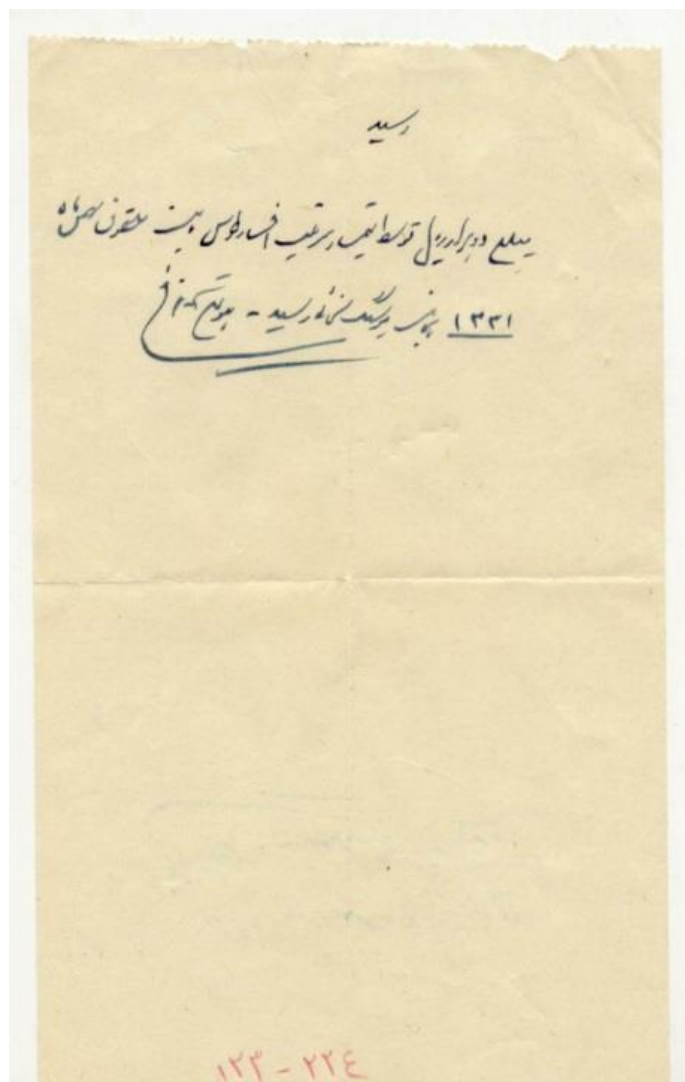 رسید
مبلغ دو هزار ریال توسط تیمسار سرتیپ افشارطوس بابت حقوق بهمن ماه
۱۳۳۱ رسید -
۱۲۳ - ۲۲٤